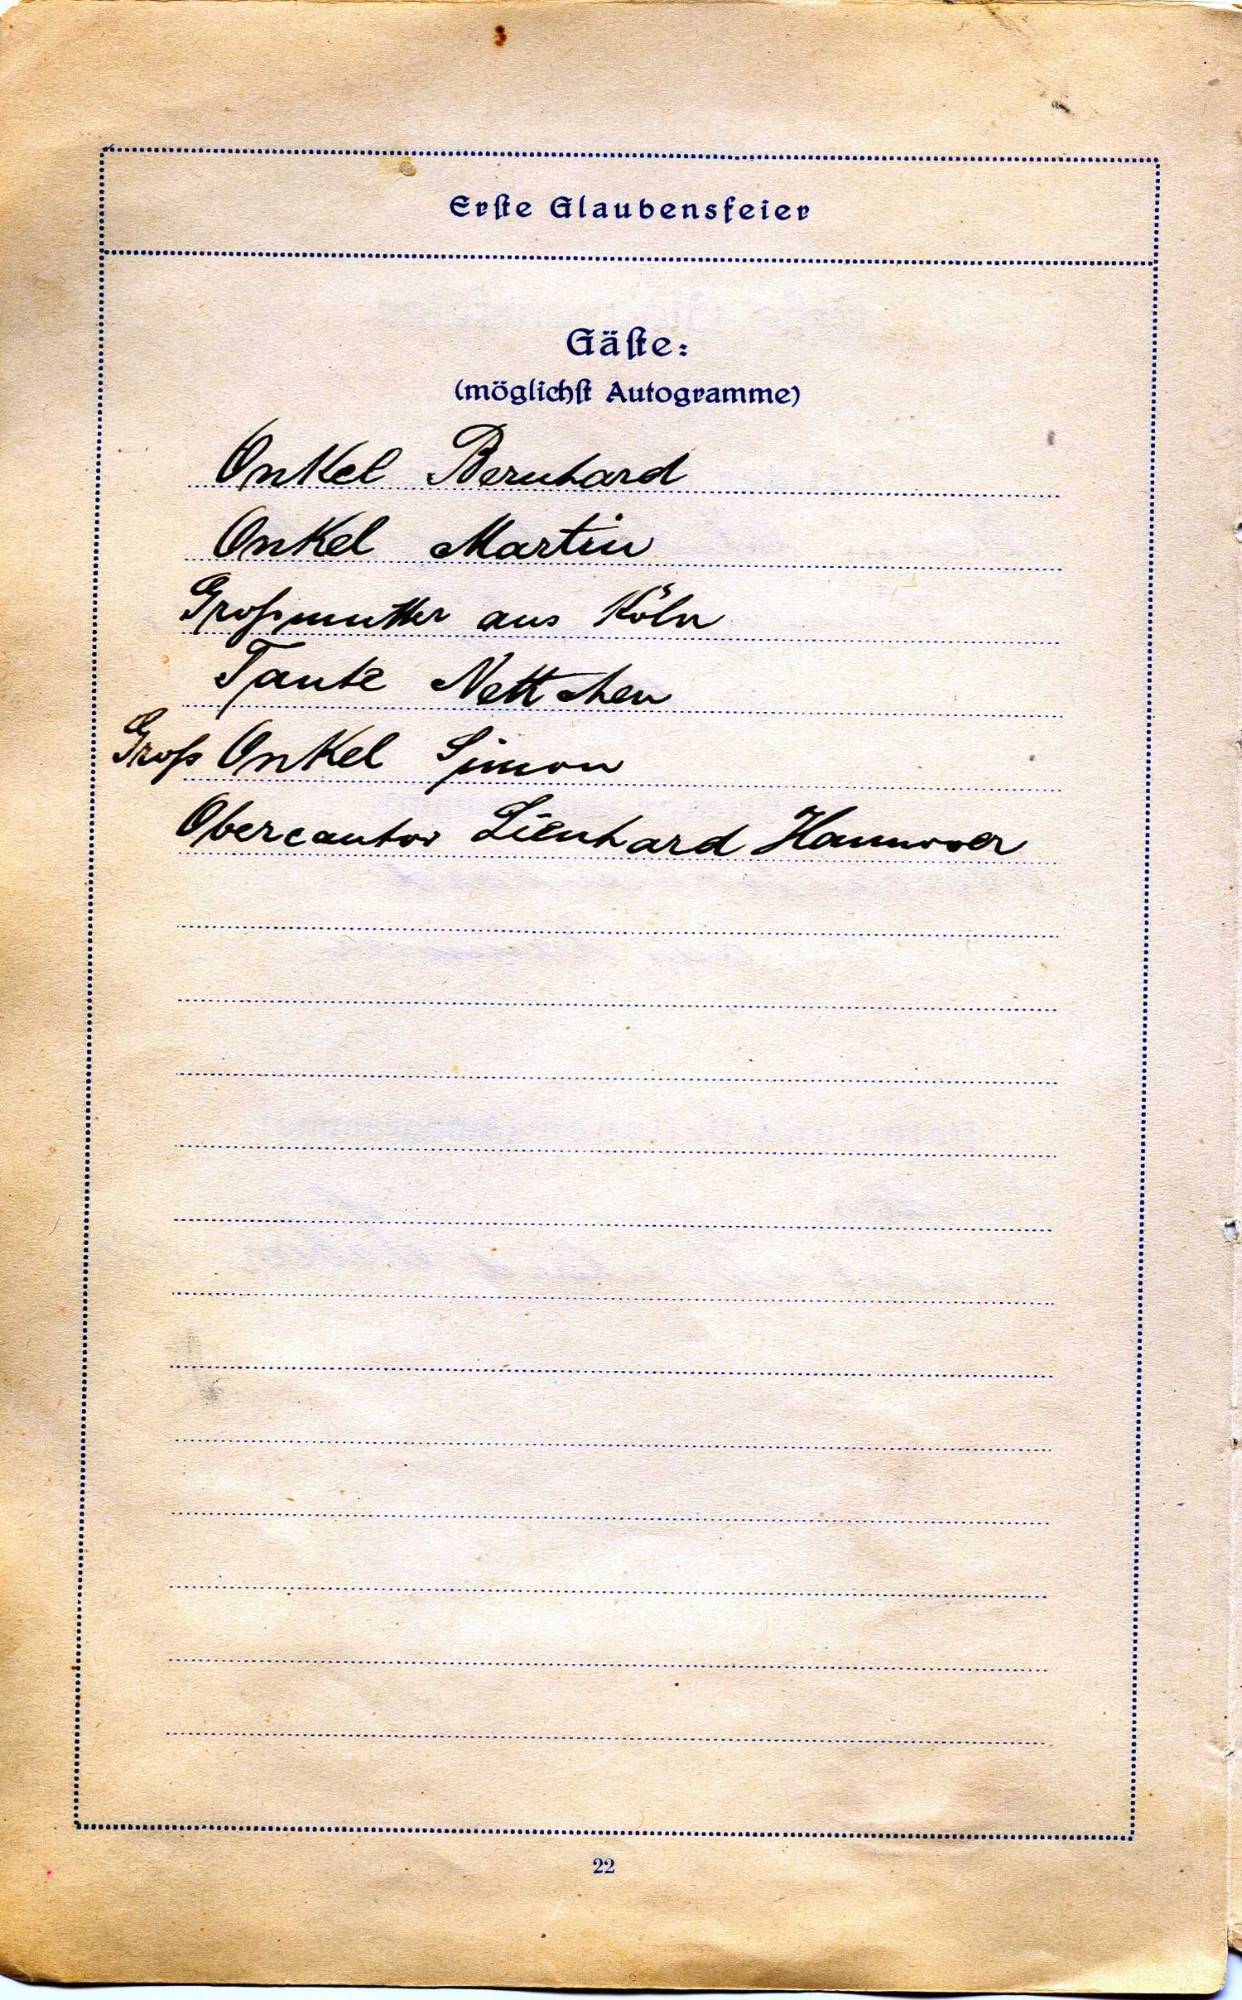 Erste Glaubensfeier
Gäste:
(möglichst Autogramme)
Onkel Bernhard
Onkel Martin
Großmutter aus Köln
Tante Nettchen
Groß Onkel Simon
Obercantor Lienhard Hannover
22